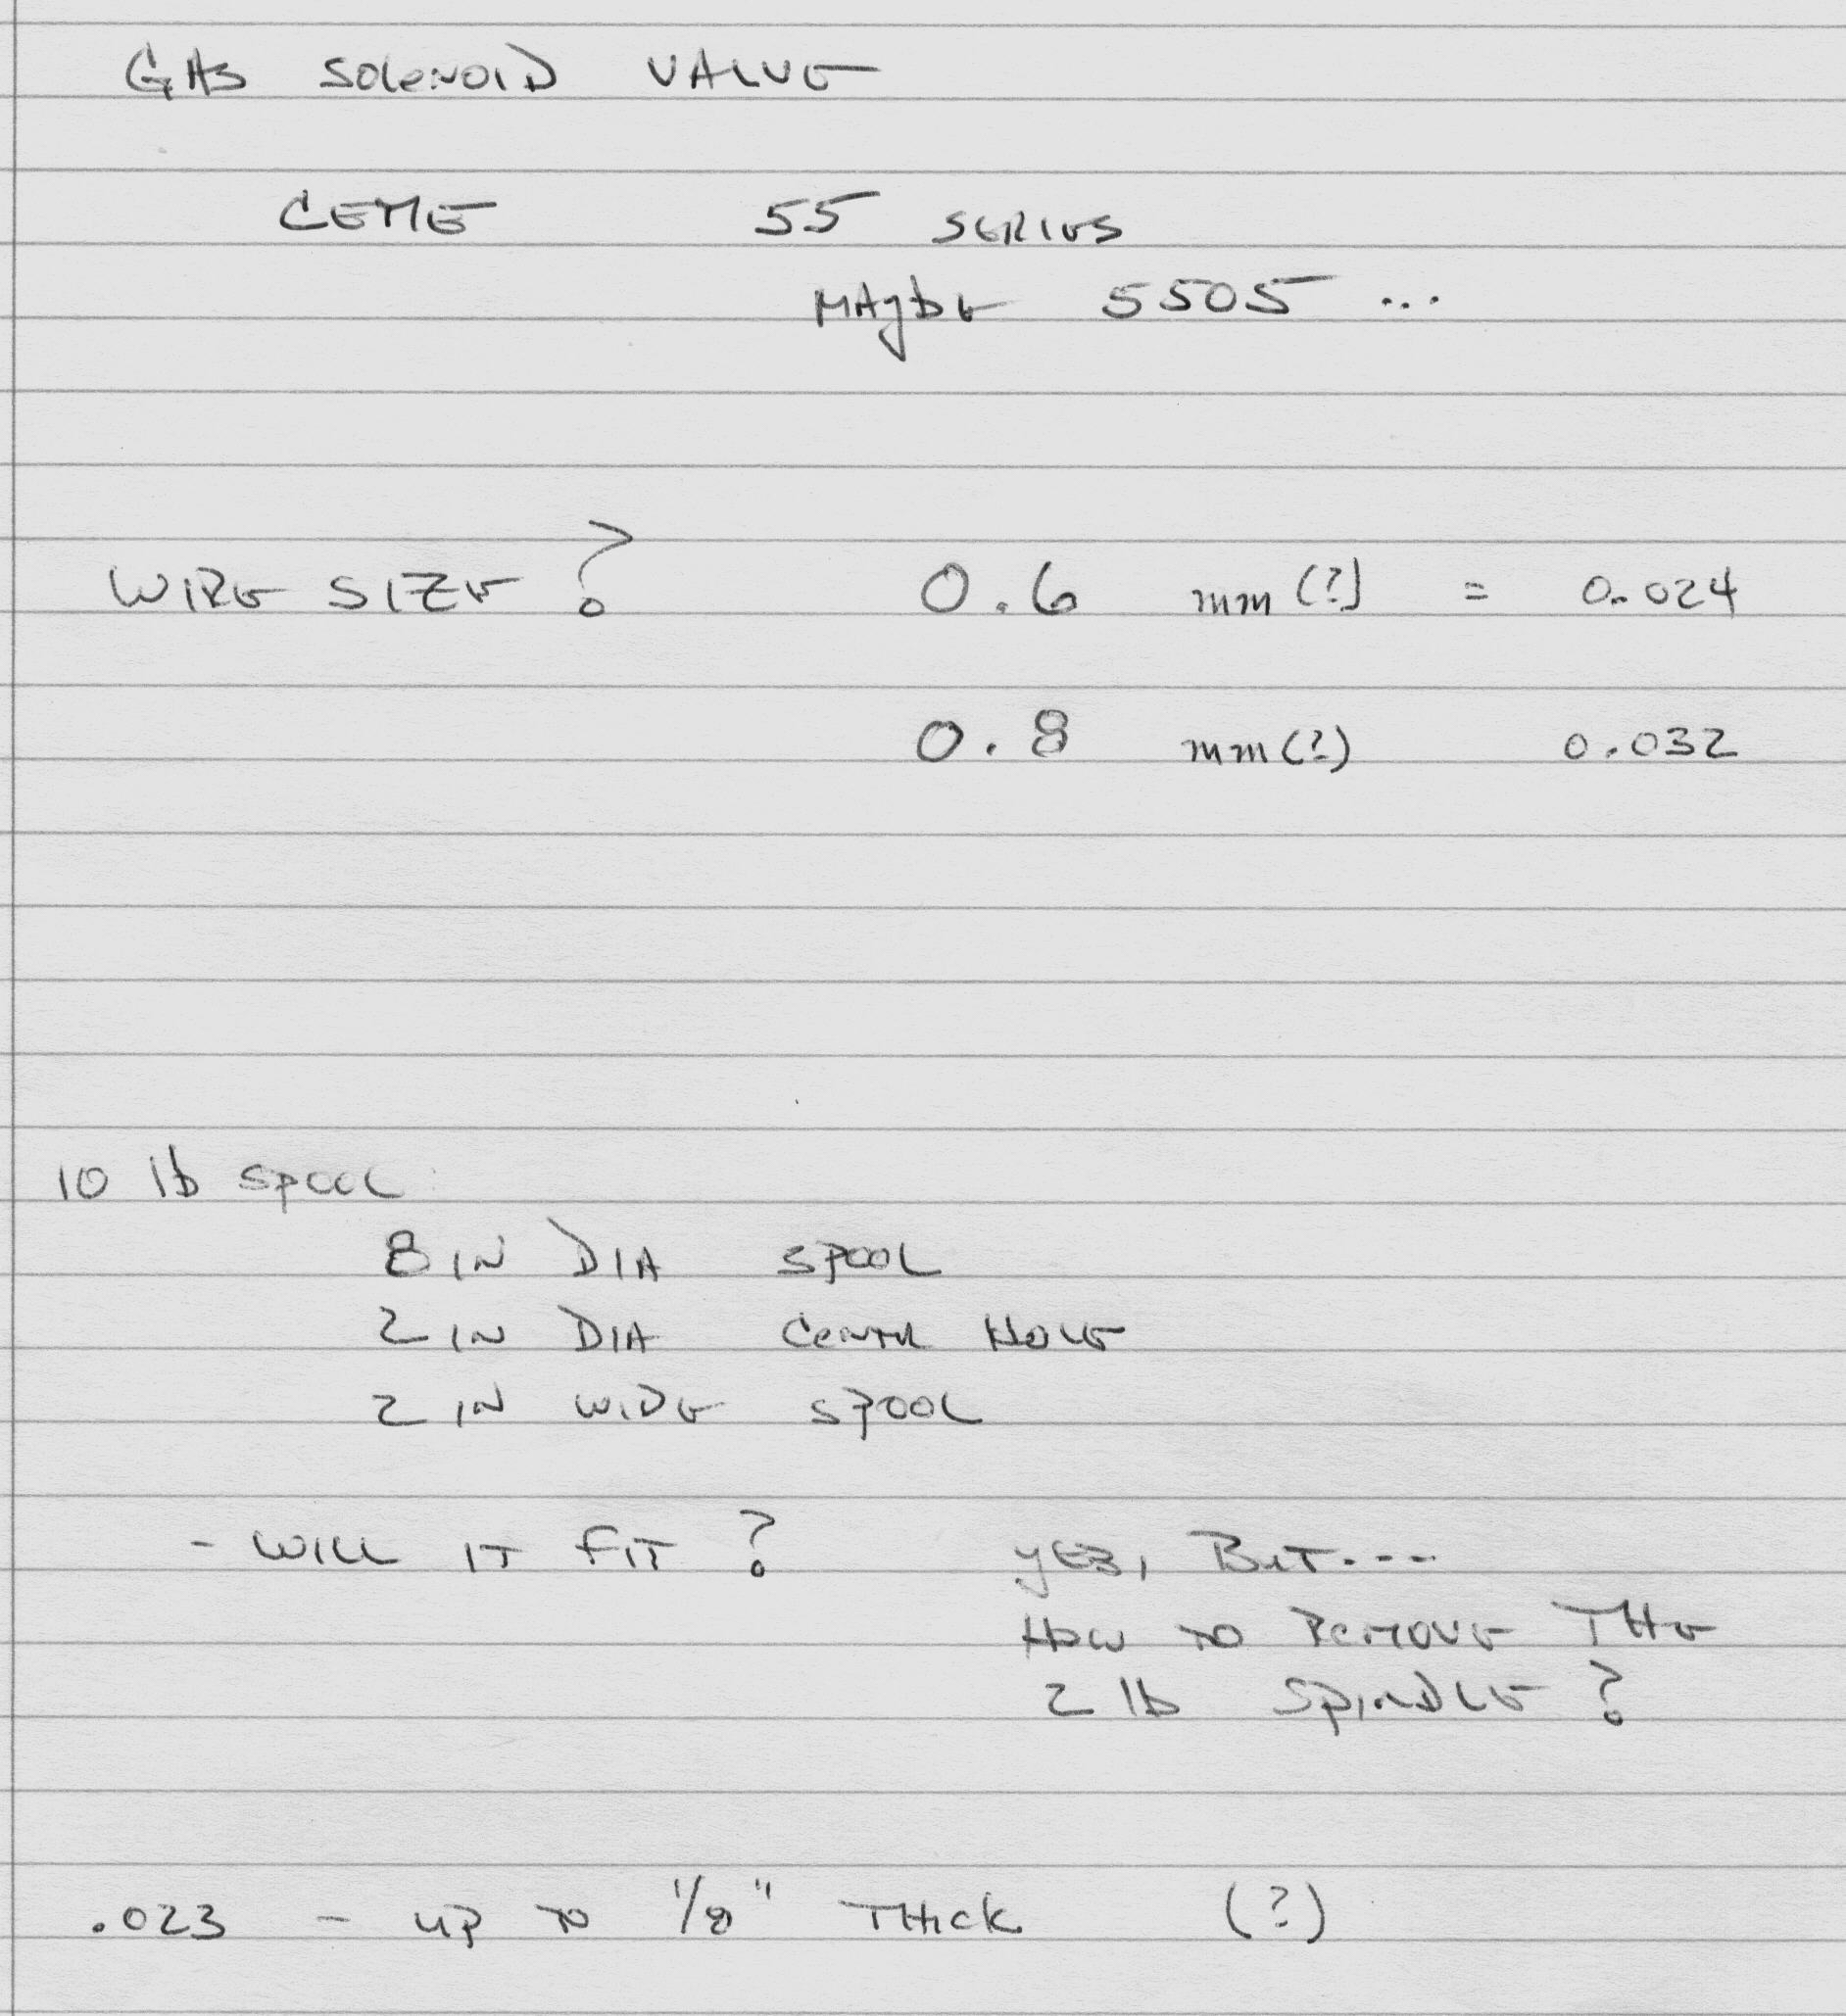 GAS SOLENOID VALVE
CEME 55 SERIES
MAYBE 5505 ...
WIRE SIZE ? 0.6 mm (?) = 0.024
0.8 mm (?) 0.032
10 lb SPOOL
8 IN DIA SPOOL
2 IN DIA CENTR HOLE
2 IN WIDE SPOOL
- WILL IT FIT ? YES, BUT....
HOW TO REMOVE THE
2 lb SPINDLE ?
.023 - UP TO 1/8" THICK (?)